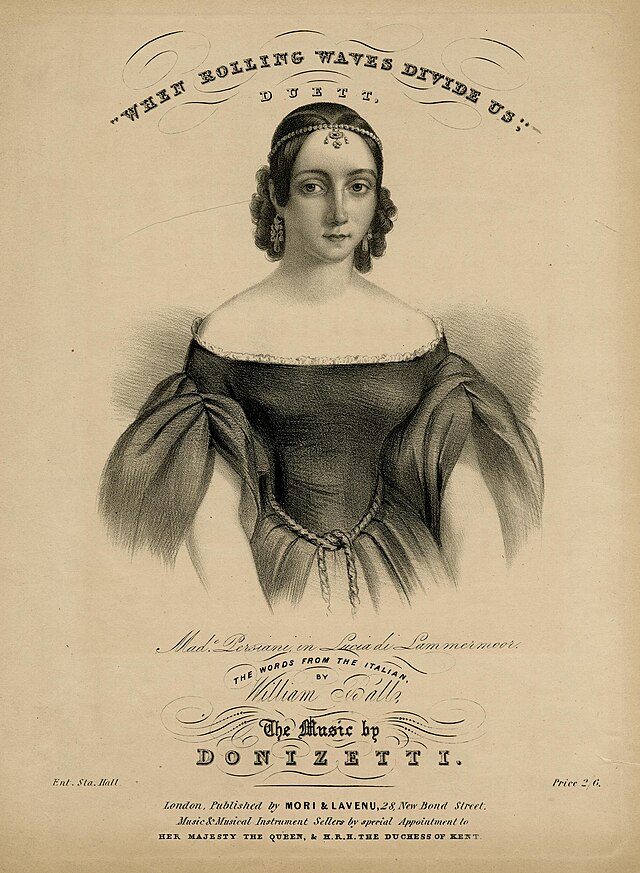 "WHEN ROLLING WAVES DIVIDE US,"
DUETT.
Mad.e Persiani, in Lucia di Lammermoor.
THE WORDS FROM THE ITALIAN,
BY
William Ball,
The Music by
DONIZETTI.
Ent. Sta. Hall
Price 2/6.
London, Published by MORI & LAVENU, 28, New Bond Street.
Music & Musical Instrument Sellers by special Appointment to
HER MAJESTY THE QUEEN, & H.R.H. THE DUCHESS OF KENT.